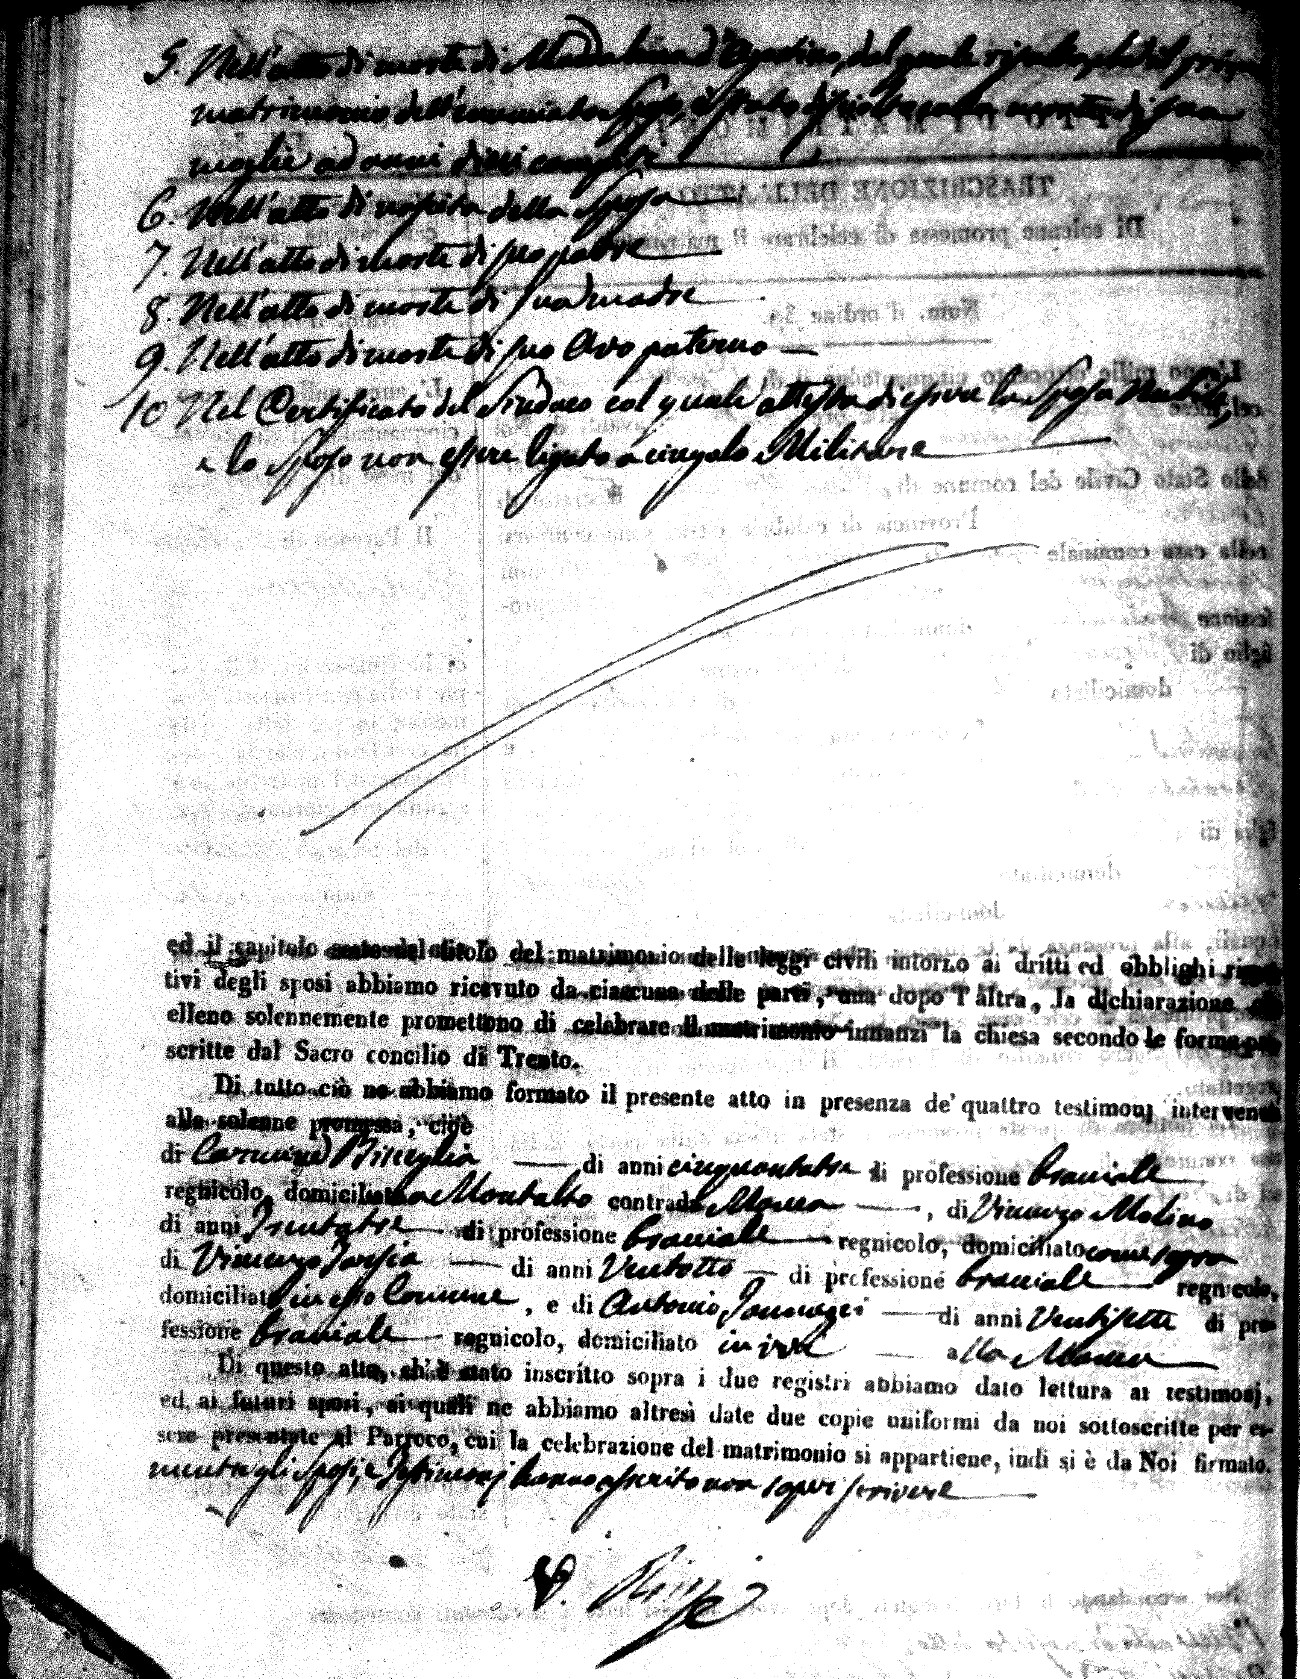 5. Nell'atto di morte di Maddalena d'Agostino, dal quale risulta, che il primo
matrimonio dell'enunciato Sposo, è stato disciolto colla morte di sua
moglie ad anni dieci compiti
6. Nell'atto di nascita della Sposa
7. Nell'atto di morte di suo padre
8. Nell'atto di morte di sua madre
9. Nell'atto di morte di suo Avo paterno
10 Nel Certificato del Sindaco col quale attesta di essere la Sposa Nubile,
e lo Sposo non essere ligato a cingolo Militare
ed il capitolo del titolo del matrimonio delle leggi civili intorno ai dritti ed obblighi rispet-
tivi degli sposi abbiamo ricevuto da ciascuna delle parti, una dopo l'altra, la dichiarazione che
elleno solennemente promettono di celebrare il matrimonio innanzi la chiesa secondo le forme pre-
scritte dal Sacro concilio di Trento.
Di tutto ciò ne abbiamo formato il presente atto in presenza de' quattro testimonj intervenuti
alla solenne promessa, cioè
di Carmine Bisceglia di anni cinquantatre di professione bracciale
regnicolo, domiciliato a Montalto contrada Mauro, di Vincenzo Molino
di anni Trentatre di professione bracciale regnicolo, domiciliato come sopra
di Vincenzo di anni Ventotto di professione bracciale regnicolo,
domiciliato in esso Comune, e di Antonio di anni Ventisette di pro-
fessione bracciale regnicolo, domiciliato in ivi alla Mauro
Di questo atto, ch'è stato inscritto sopra i due registri abbiamo dato lettura ai testimonj,
ed ai futuri sposi, ai quali ne abbiamo altresì date due copie uniformi da noi sottoscritte per es-
sere presentate al Parroco, cui la celebrazione del matrimonio si appartiene, indi si è da Noi firmato.
mentre gli Sposi, e Testimonj hanno asserito non saper scrivere